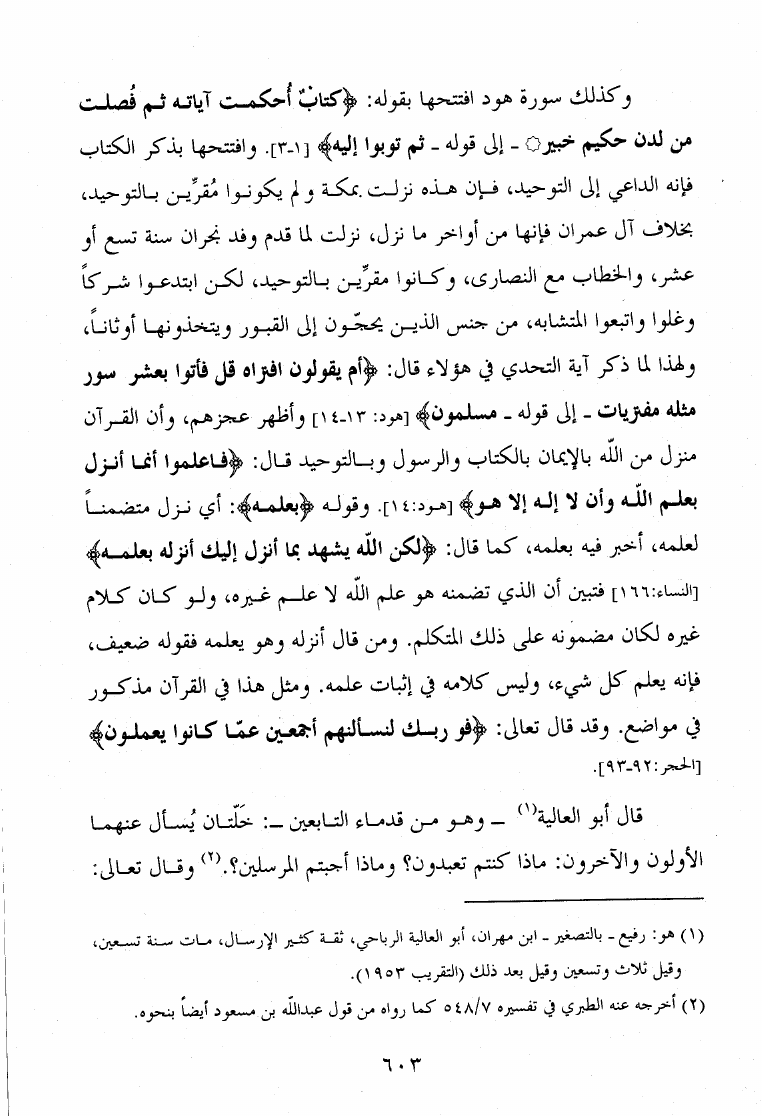 وكذلك سورة هود افتتحها بقوله: ﴿كتابٌ أُحكمت آياته ثم فُصلت
من لدن حكيم خبير۞ ـ إلى قوله ـ ثم توبوا إليه﴾ [١ـ٣]. وافتتحها بذكر الكتاب
فإنه الداعي إلى التوحيد، فإن هذه نزلت بمكة و لم يكونوا مُقرِّين بالتوحيد،
بخلاف آل عمران فإنها من أواخر ما نزل، نزلت لما قدم وفد نجران سنة تسع أو
عشر، والخطاب مع النصارى، وكانوا مقرِّين بالتوحيد، لكن ابتدعوا شركاً
وغلوا واتبعوا المتشابه، من جنس الذين يحجّون إلى القبور ويتخذونها أوثاناً،
ولهذا لما ذكر آية التحدي في هؤلاء قال: ﴿أم يقولون افتراه قل فأتوا بعشر سور
مثله مفتريات ـ إلى قوله ـ مسلمون﴾ [هود: ١٣ـ١٤] وأظهر عجزهم، وأن القرآن
منزل من الله بالإيمان بالكتاب والرسول وبالتوحيد قال: ﴿فاعلموا أنما أنزل
بعلم الله وأن لا إله إلا هو﴾ [هود:١٤]. وقوله ﴿بعلمه﴾: أي نزل متضمناً
لعلمه، أخبر فيه بعلمه، كما قال: ﴿لكن الله يشهد بما أنزل إليك أنزله بعلمه﴾
[النساء:١٦٦] فتبين أن الذي تضمنه هو علم الله لا علم غيره، ولو كان كلام
غيره لكان مضمونه على ذلك المتكلم. ومن قال أنزله وهو يعلمه فقوله ضعيف،
فإنه يعلم كل شيء، وليس كلامه في إثبات علمه. ومثل هذا في القرآن مذكور
في مواضع. وقد قال تعالى: ﴿فو ربك لنسألنهم أجمعين عمّا كانوا يعملون﴾
[الحجر:٩٢ـ٩٣].
قال أبو العالية(١) ـ وهو من قدماء التابعين ـ: خَلّتان يُسأل عنهما
الأولون والآخرون: ماذا كنتم تعبدون؟ وماذا أجبتم المرسلين؟.(٢) وقال تعالى:
(١) هو: رفيع ـ بالتصغير ـ ابن مهران، أبو العالية الرياحي، ثقة كثير الإرسال، مات سنة تسعين،
وقيل ثلاث وتسعين وقيل بعد ذلك (التقريب ١٩٥٣).
(٢) أخرجه عنه الطبري في تفسيره ٥٤٨/٧ كما رواه من قول عبدالله بن مسعود أيضاً بنحوه.
٦٠٣